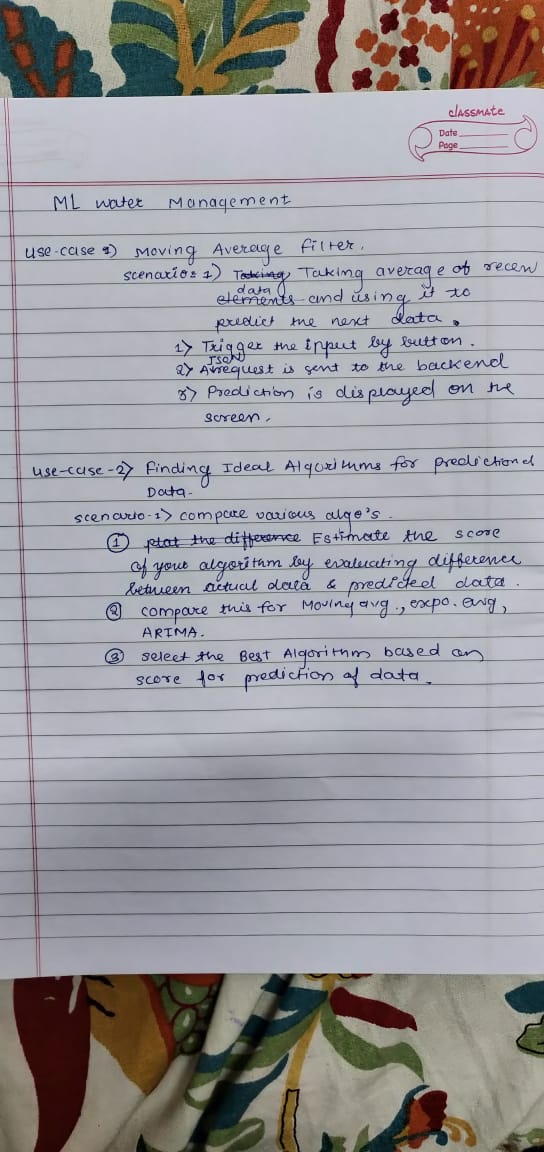 classmate
Date
Page
ML water Management
use-case 1) Moving Average filter.
scenario: 1) Taking Taking average of recent
data
elements and using it to
predict the next data.
1) Trigger the input by button.
JSON
2) A request is sent to the backend
3) Prediction is displayed on the
screen.
use-case-2) Finding Ideal Algorithms for prediction of
Data.
scenario-1) compare various algo's.
① plot the difference Estimate the score
of your algorithm by evaluating difference
between actual data & predicted data.
② compare this for Moving avg., expo. avg,
ARIMA.
③ select the Best Algorithm based on
score for prediction of data.